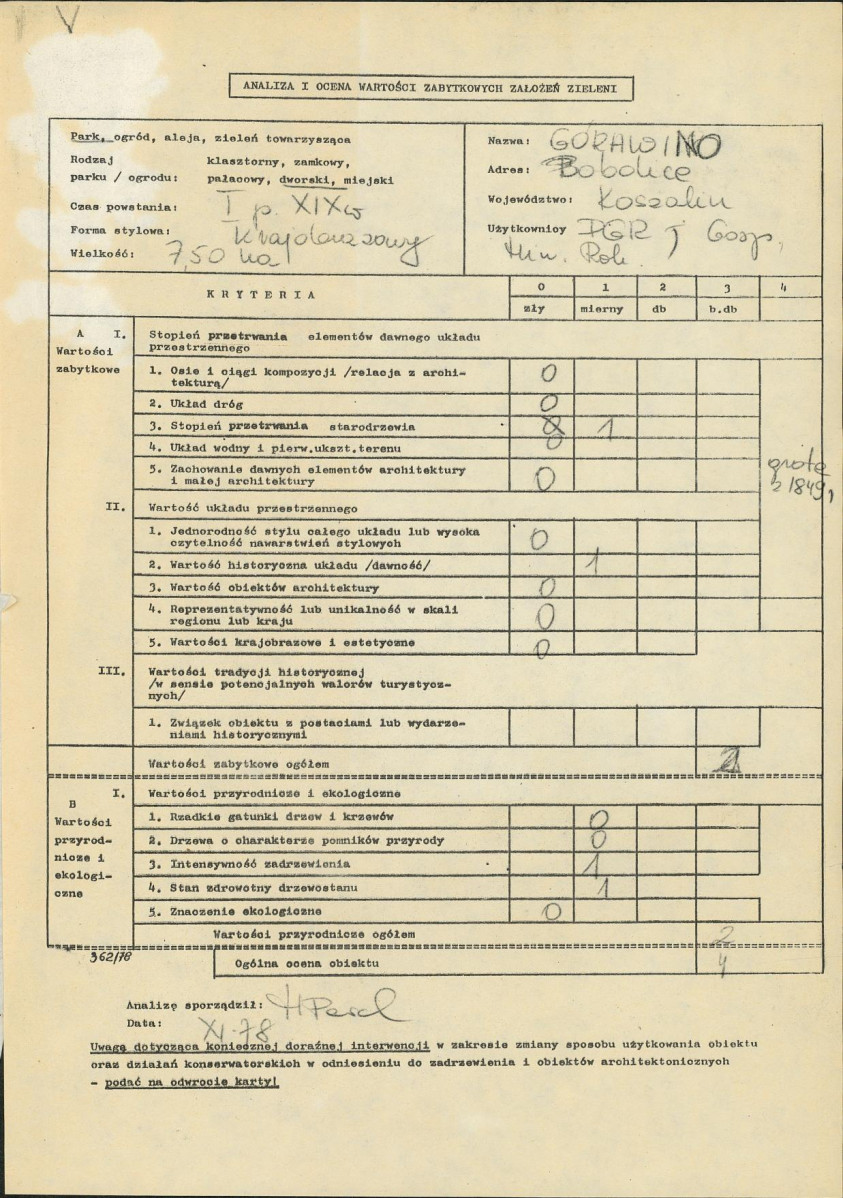 V
ANALIZA I OCENA WARTOŚCI ZABYTKOWYCH ZAŁOŻEŃ ZIELENI
Park, ogród, aleja, zieleń towarzysząca
Rodzaj klasztorny, zamkowy,
parku / ogrodu: pałacowy, dworski, miejski
Czas powstania: I p. XIXw
Forma stylowa: Krajobrazowy
Wielkość: 7,50 ha
Nazwa: GÓRAWINO
Adres: Bobolice
Województwo: Koszalin
Użytkownicy PGR i Gosp.
Ind. Rol.
KRYTERIA 0 1 2 3 4
zły mierny db b.db
A I. Stopień przetrwania elementów dawnego układu
Wartości przestrzennego
zabytkowe 1. Osie i ciągi kompozycji /relacja z archi- 0
tekturą/
2. Układ dróg 0
3. Stopień przetrwania starodrzewia 1
4. Układ wodny i pierw.ukszt.terenu 0
5. Zachowanie dawnych elementów architektury 0
i małej architektury
grota
z 1849,
II. Wartość układu przestrzennego
1. Jednorodność stylu całego układu lub wysoka 0
czytelność nawarstwień stylowych
2. Wartość historyczna układu /dawność/ 1
3. Wartość obiektów architektury 0
4. Reprezentatywność lub unikalność w skali 0
regionu lub kraju
5. Wartości krajobrazowe i estetyczne 0
III. Wartości tradycji historycznej
/w sensie potencjalnych walorów turystycz-
nych/
1. Związek obiektu z postaciami lub wydarze-
niami historycznymi
Wartości zabytkowe ogółem 2
B I. Wartości przyrodnicze i ekologiczne
Wartości 1. Rzadkie gatunki drzew i krzewów 0
przyrod- 2. Drzewa o charakterze pomników przyrody 0
nicze i 3. Intensywność zadrzewienia 1
ekologi- 4. Stan zdrowotny drzewostanu 1
czne 5. Znaczenie ekologiczne 0
Wartości przyrodnicze ogółem 2
362/78 Ogólna ocena obiektu 4
Analizę sporządził:
Data: XI-78
Uwagę dotyczącą koniecznej doraźnej interwencji w zakresie zmiany sposobu użytkowania obiektu
oraz działań konserwatorskich w odniesieniu do zadrzewienia i obiektów architektonicznych
- podać na odwrocie karty!